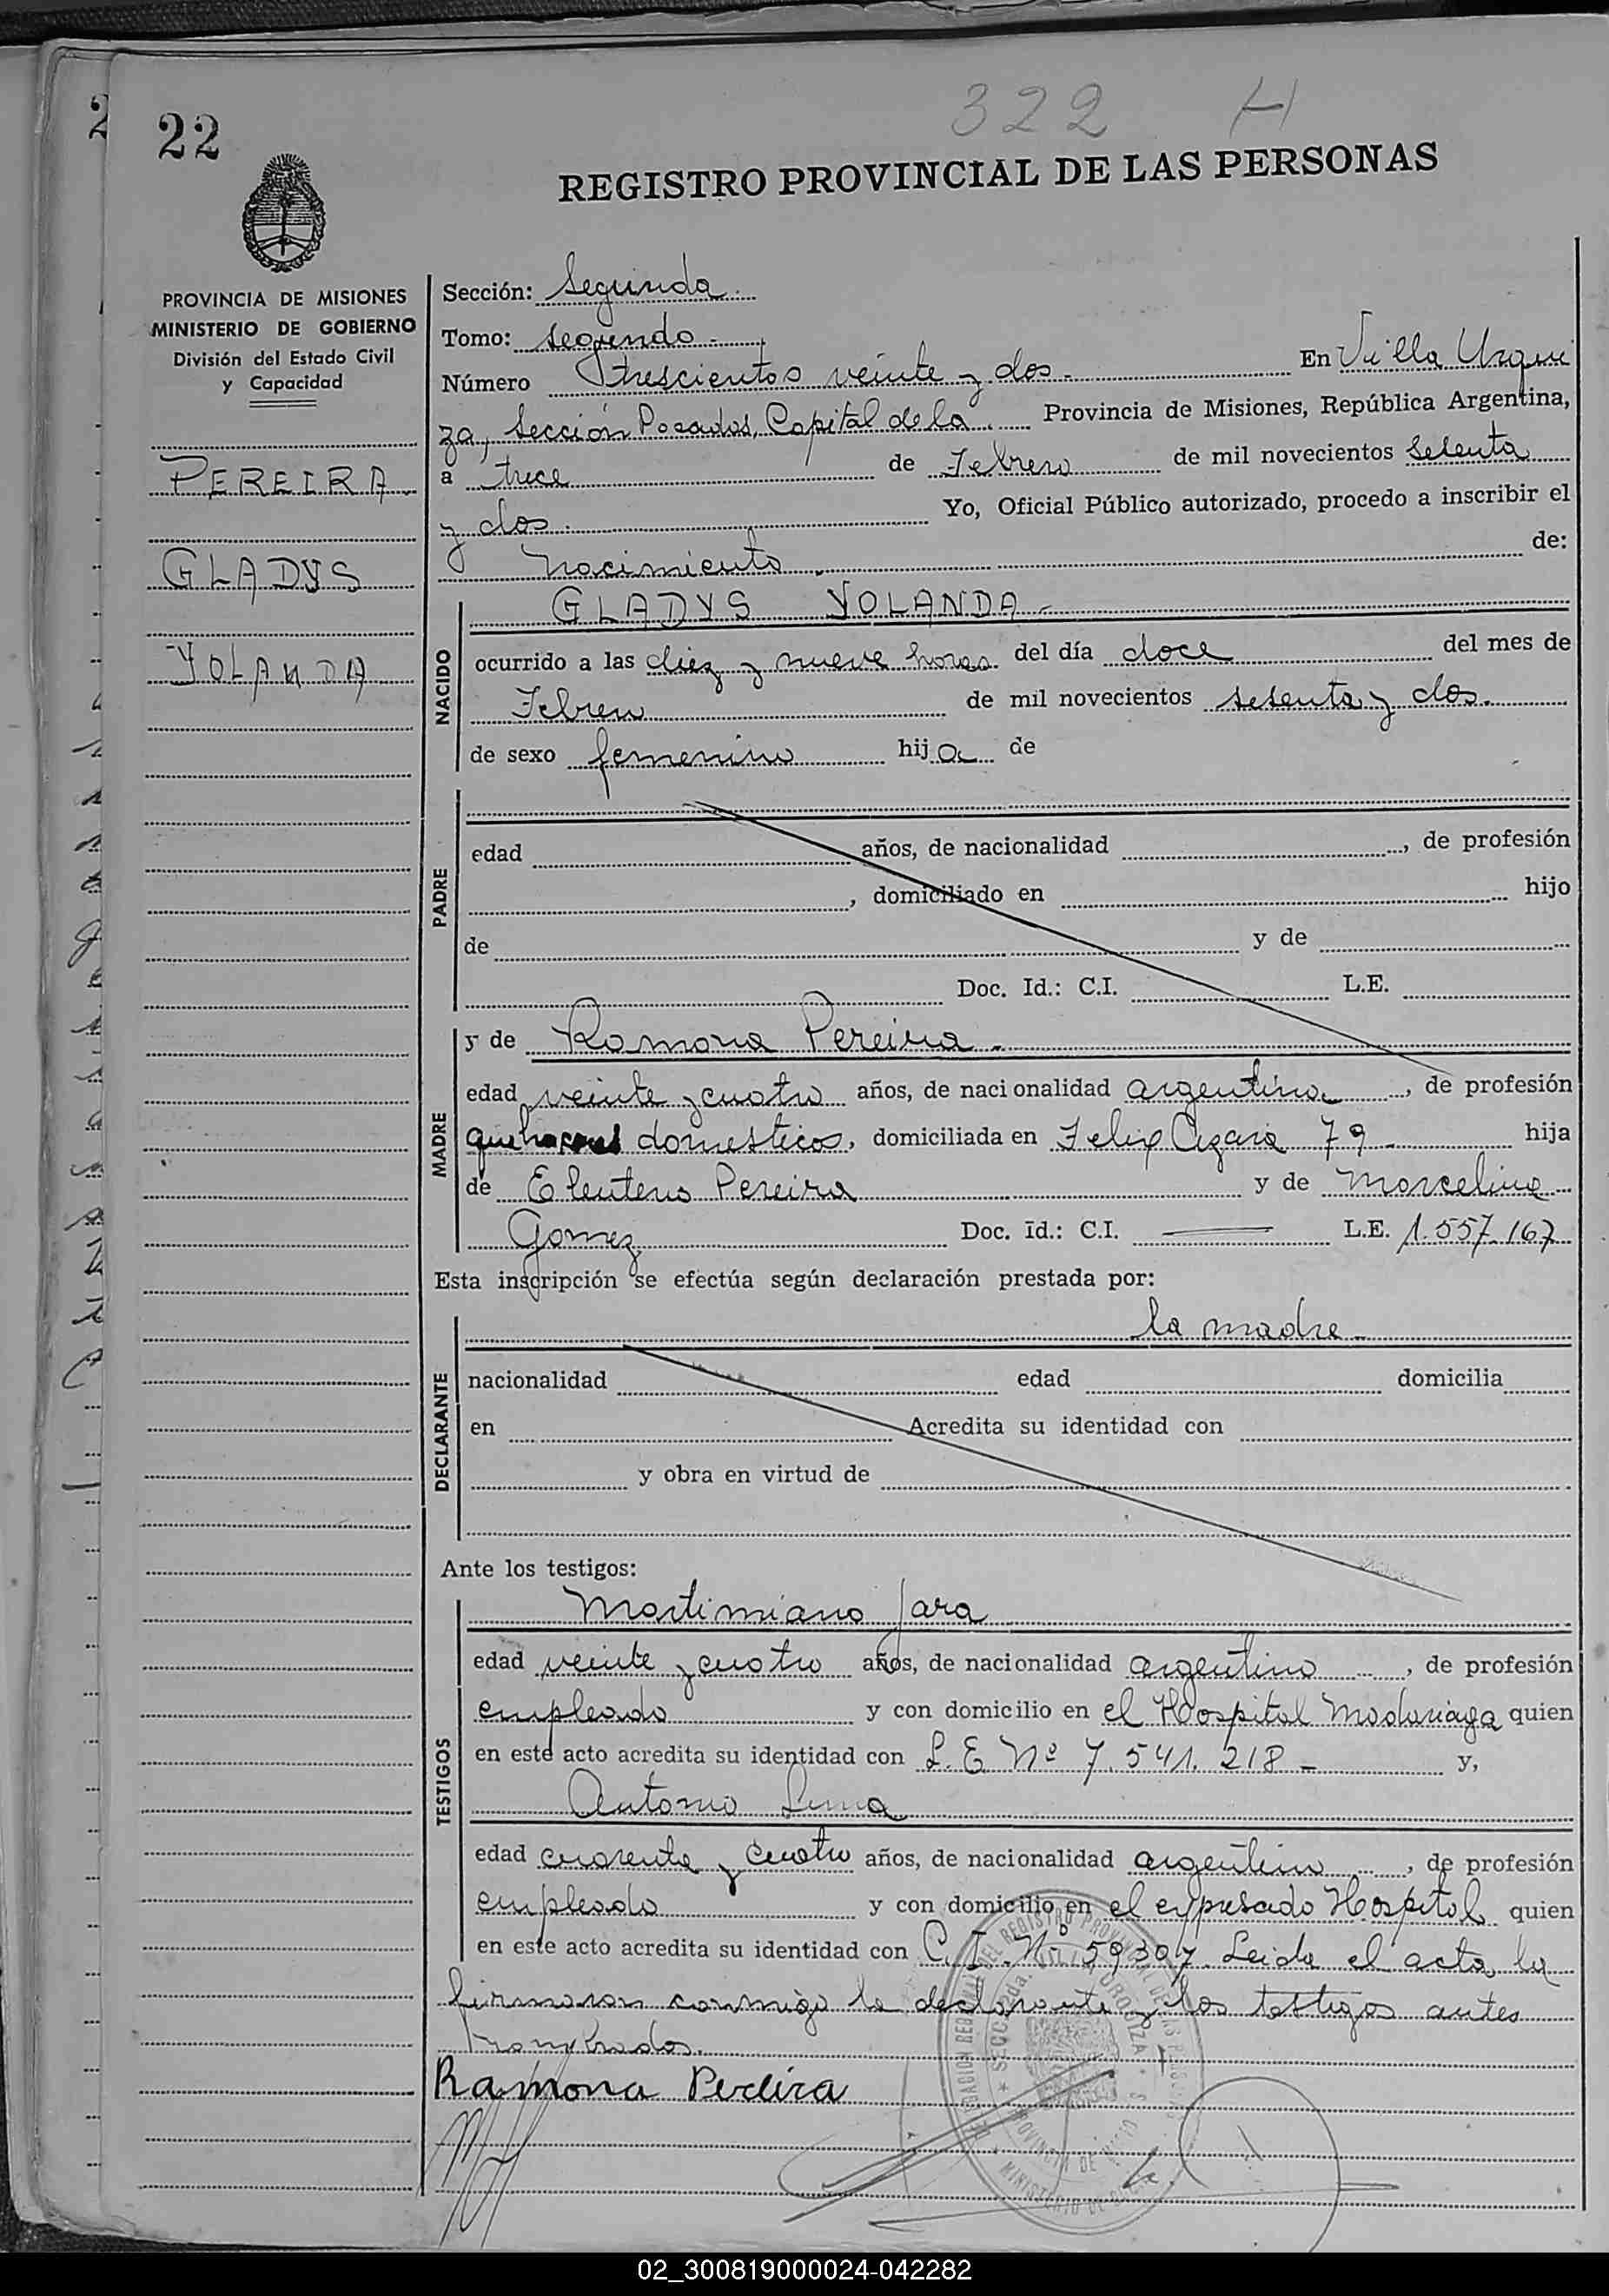 322 H
22
REGISTRO PROVINCIAL DE LAS PERSONAS
PROVINCIA DE MISIONES
MINISTERIO DE GOBIERNO
División del Estado Civil
y Capacidad
PEREIRA
GLADYS
YOLANDA
Sección: Segunda
Tomo: segundo
Número trescientos veinte y dos. En Villa Urqui
za, Sección Posadas, Capital de la Provincia de Misiones, República Argentina,
a trece de Febrero de mil novecientos setenta
y dos. Yo, Oficial Público autorizado, procedo a inscribir el
nacimiento de:
NACIDO
GLADYS YOLANDA
ocurrido a las diez y nueve horas del día doce del mes de
Febrero de mil novecientos setenta y dos.
de sexo femenino hija de
PADRE
edad años, de nacionalidad , de profesión
, domiciliado en hijo
de y de
Doc. Id.: C.I. L.E.
MADRE
y de Ramona Pereira
edad veinte y cuatro años, de nacionalidad argentina, de profesión
quehaceres domesticos, domiciliada en Felix Azara 79 hija
de Eleuterio Pereira y de Marcelina
Gomez Doc. Id.: C.I. L.E. 1.557.167
Esta inscripción se efectúa según declaración prestada por:
DECLARANTE
la madre
nacionalidad edad domicilia
en Acredita su identidad con
y obra en virtud de
Ante los testigos:
TESTIGOS
Martimiano Jara
edad veinte y cuatro años, de nacionalidad argentino, de profesión
empleado y con domicilio en el Hospital Madariaga quien
en este acto acredita su identidad con L.E Nº 7.541.218 y,
Antonio Luna
edad cuarenta y cuatro años, de nacionalidad argentino, de profesión
empleado y con domicilio en el expresado Hospital quien
en este acto acredita su identidad con C.I. Nº 59307. Leida el acta, la
firmaron conmigo la declarante y los testigos antes
nombrados.
Ramona Pereira
02_300819000024-042282